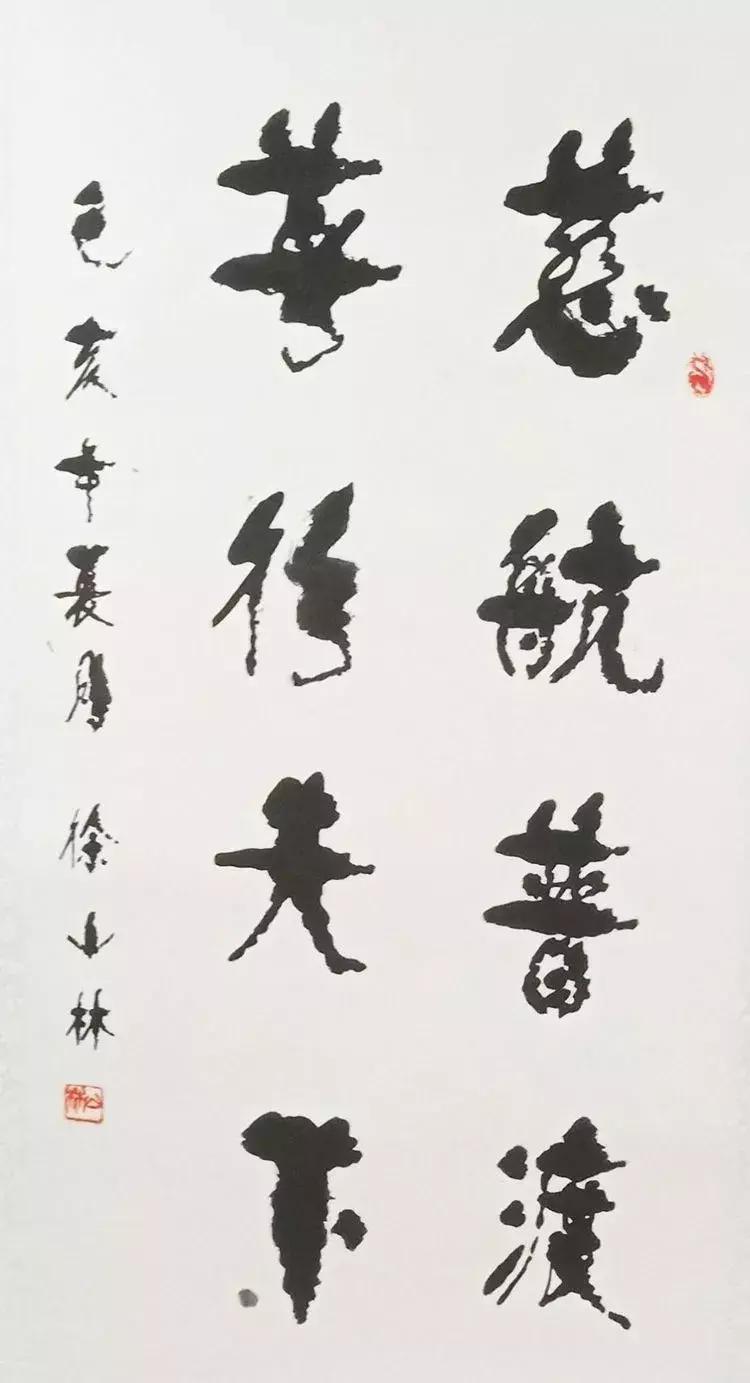 慈航普渡
善行天下
己亥年夏月 徐山林